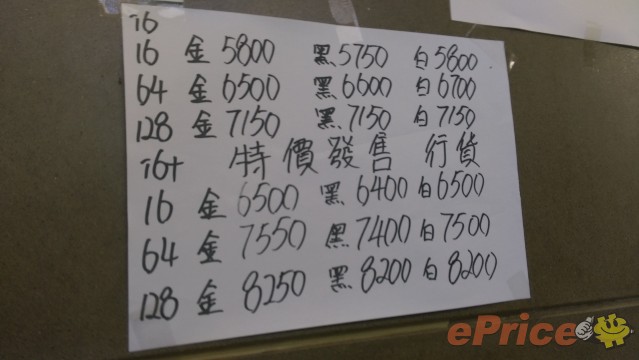 i6
16 金 5800 黑 5750 白 5800
64 金 6500 黑 6600 白 6700
128 金 7150 黑 7150 白 7150
i6+ 特價發售 行貨
16 金 6500 黑 6400 白 6500
64 金 7550 黑 7400 白 7500
128 金 8250 黑 8200 白 8200
ePrice